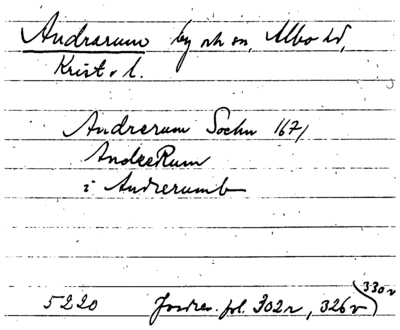 Andrarum by och sn, Albo hd,
Krist. l.
Andrerum Sochn 1671
AndreRum
i Andrerumb
5220 Jordrev. fol. 302r, 326v
330v